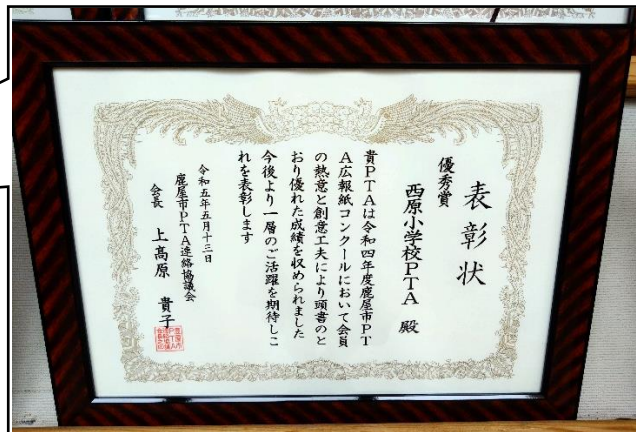 表彰状
優秀賞
西原小学校PTA 殿
貴PTAは令和四年度鹿屋市PT
A広報紙コンクールにおいて会員
の熱意と創意工夫により頭書のと
おり優れた成績を収められました
今後より一層のご活躍を期待しこ
れを表彰します
令和五年五月十三日
鹿屋市PTA連絡協議会
会長 上高原 貴子